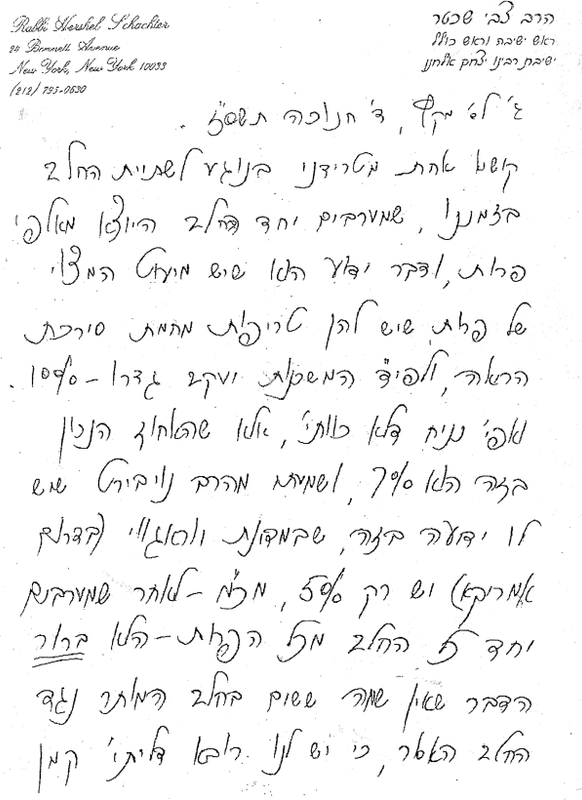 Rabbi Hershel Schachter
24 Bennett Avenue
New York, New York 10033
(212) 795-0630
הרב צבי שכטר
ראש ישיבה וראש כולל
ישיבת רבינו יצחק אלחנן
ג' לס' מקץ, ד' חנוכה תשס"ז.
קושיא אחת מטרידני בנוגע לשתיית החלב
בזמננו, שמערבים יחד החלב היוצא מאלפי
פרות, ודבר ידוע הוא שיש מיעוט המצוי
של פרות שיש להן טריפות מחמת סירכת
הראה, ולפי המשכנות יעקב גדרו - 10%.
ואפי' נניח דלא כוותי', אלא שהאחוז הנכון
בזה הוא 7%, ושמעתי מהרב שיש
לו ידיעה בזה, שבמדינת (בדרום
אמריקא) יש רק 5%, מ"מ - לאחר שמערבים
יחד כל החלב מכל הפרות - הלא ברור
הדבר שאין שמה ששים בחלב המותר נגד
החלב האסור, כי יש לנו רובא דליתי' קמן